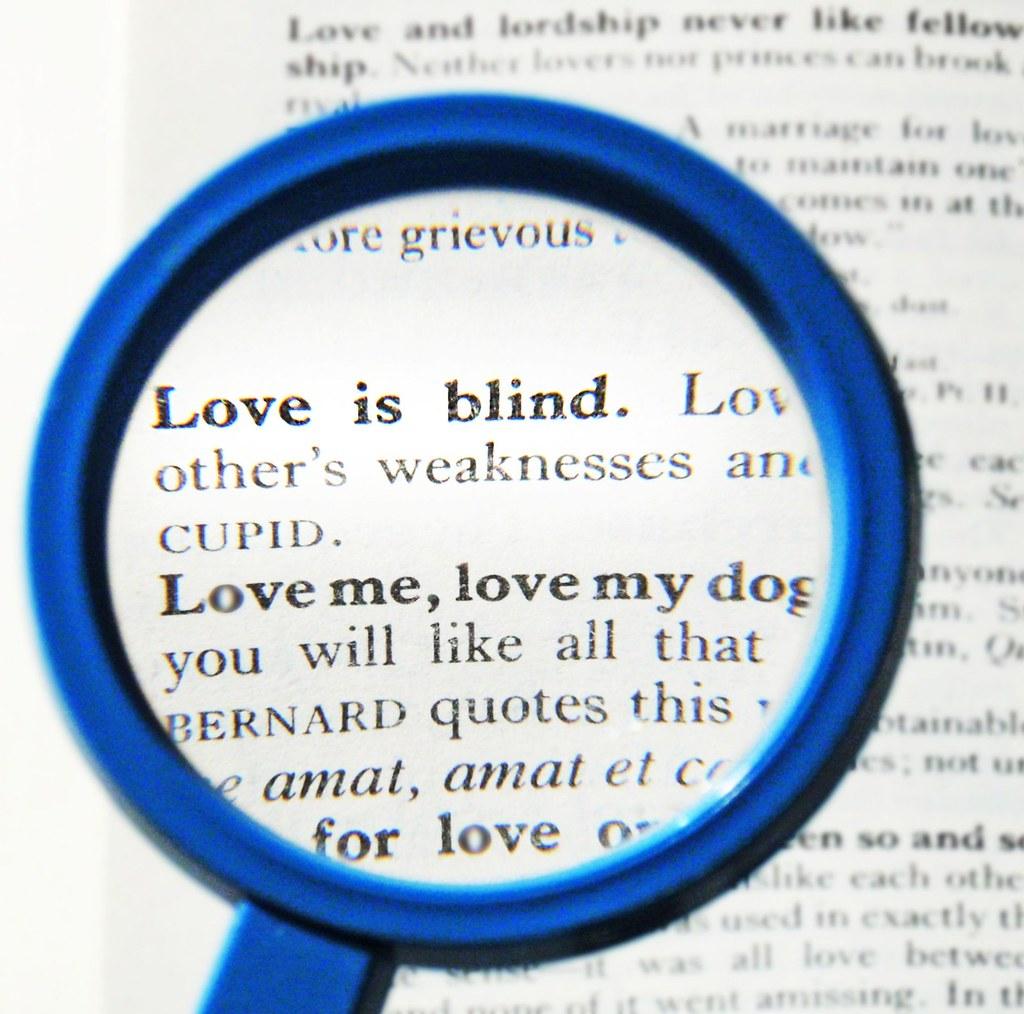 Love and lordship never like fellow
ship. Neither lovers nor princes can brook
rival
A marriage for lov
to maintain one'
comes in at th
low."
dust.
Pt. II,
ore grievous
Love is blind. Lov
other's weaknesses an
CUPID.
Love me, love my dog
you will like all that
BERNARD quotes this
e amat, amat et c
for love or
eac
gs. Se
nyone
im. S
tin, Qu
btainabl
es; not un
en so and so
slike each othe
s used in exactly th
e sense—it was all love betwe
and none of it went amissing. In th